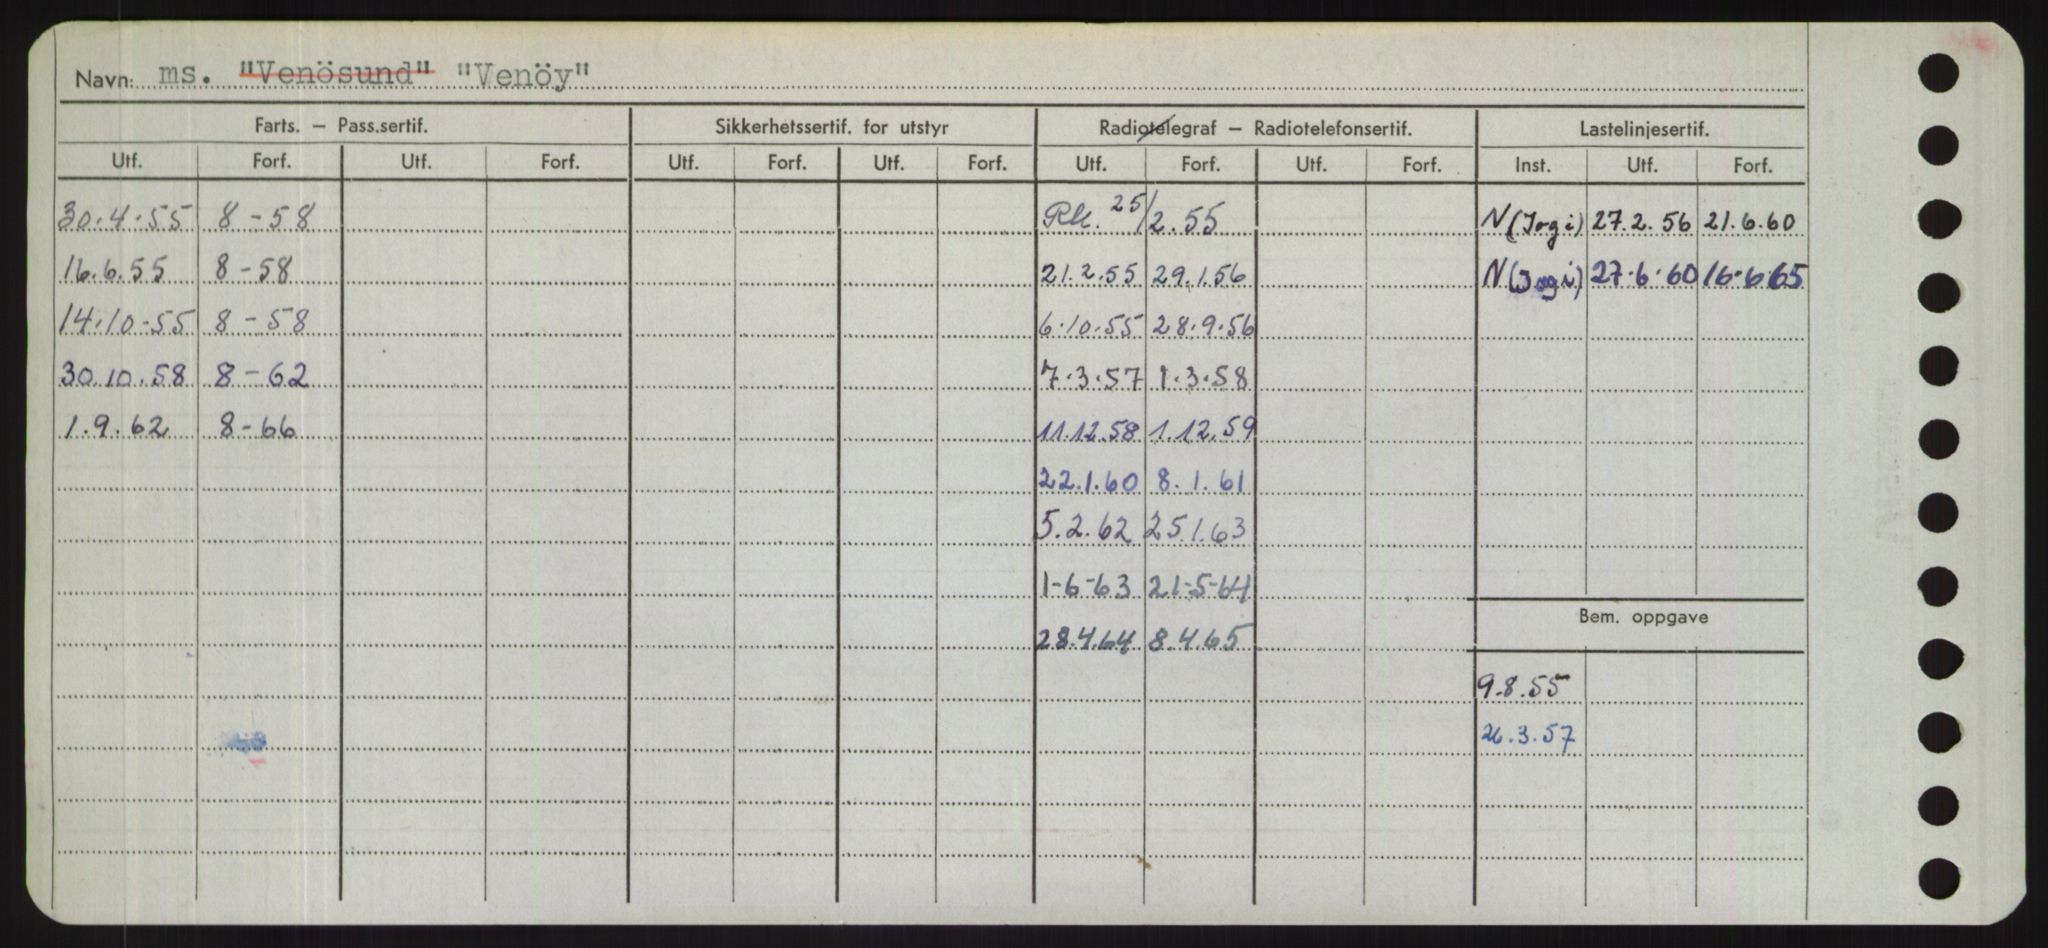 Navn: ms. "Venösund" "Venöy"
Farts. – Pass.sertif. Sikkerhetssertif. for utstyr Radiotelegraf – Radiotelefonsertif. Lastelinjesertif.
Utf. Forf. Utf. Forf. Utf. Forf. Utf. Forf. Utf. Forf. Utf. Forf. Inst. Utf. Forf.
30.4.55 8-58 25/2.55 N (Jogi) 27.2.56 21.6.60
16.6.55 8-58 21.2.55 29.1.56 N (Jogi) 27.6.60 16.6.65
14.10-55 8-58 6.10.55 28.9.56
30.10.58 8-62 7.3.57 1.3.58
1.9.62 8-66 11.12.58 1.12.59
22.1.60 8.1.61
5.2.62 25.1.63
1-6-63 21-5-64
Bem. oppgave
28.4.64 8.4.65
9.8.55
26.3.57